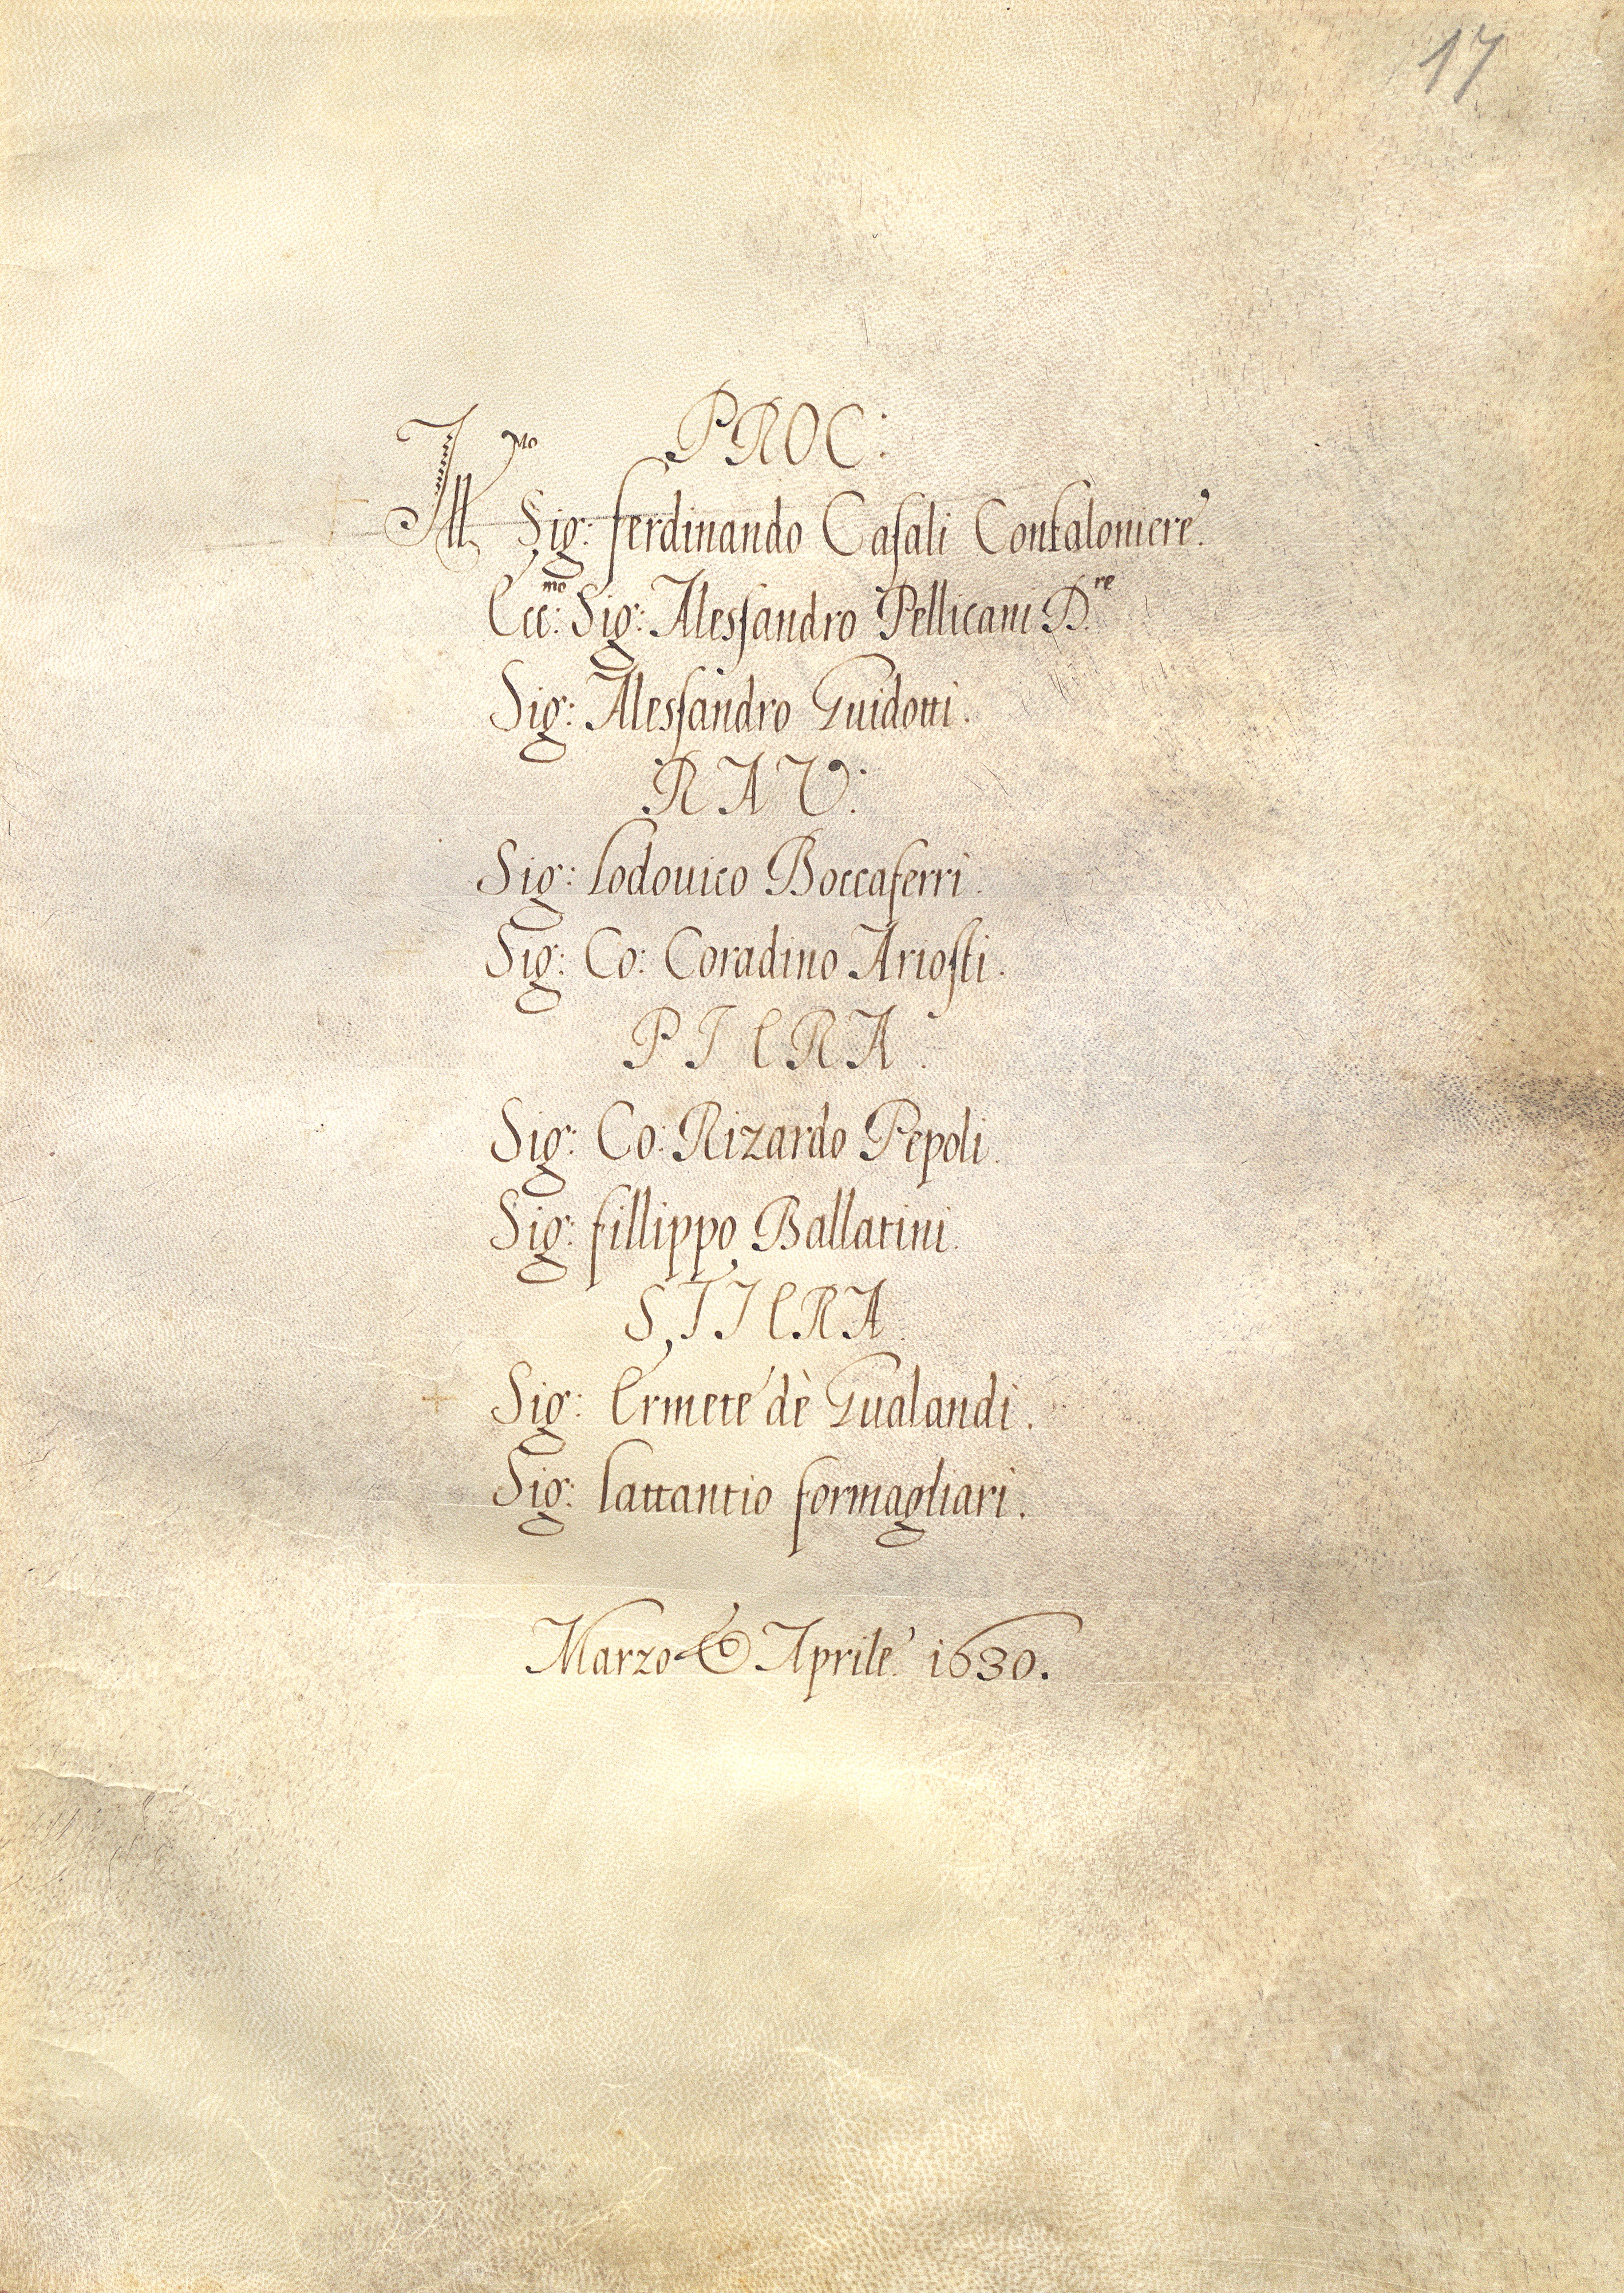 17
PROC:
Ill.mo Sig: Ferdinando Casali Confaloniere.
Ecc:mo Sig: Alessandro Pellicani D.re
Sig: Alessandro Guidotti.
RAV:
Sig: Lodouico Boccaferri.
Sig: Co: Coradino Ariosti.
PIERA.
Sig: Co: Rizardo Pepoli.
Sig: Fillippo Ballatini.
STIERA
Sig: Ermete dè Gualandi.
Sig: Lattantio Formagliari.
Marzo & Aprile. 1630.